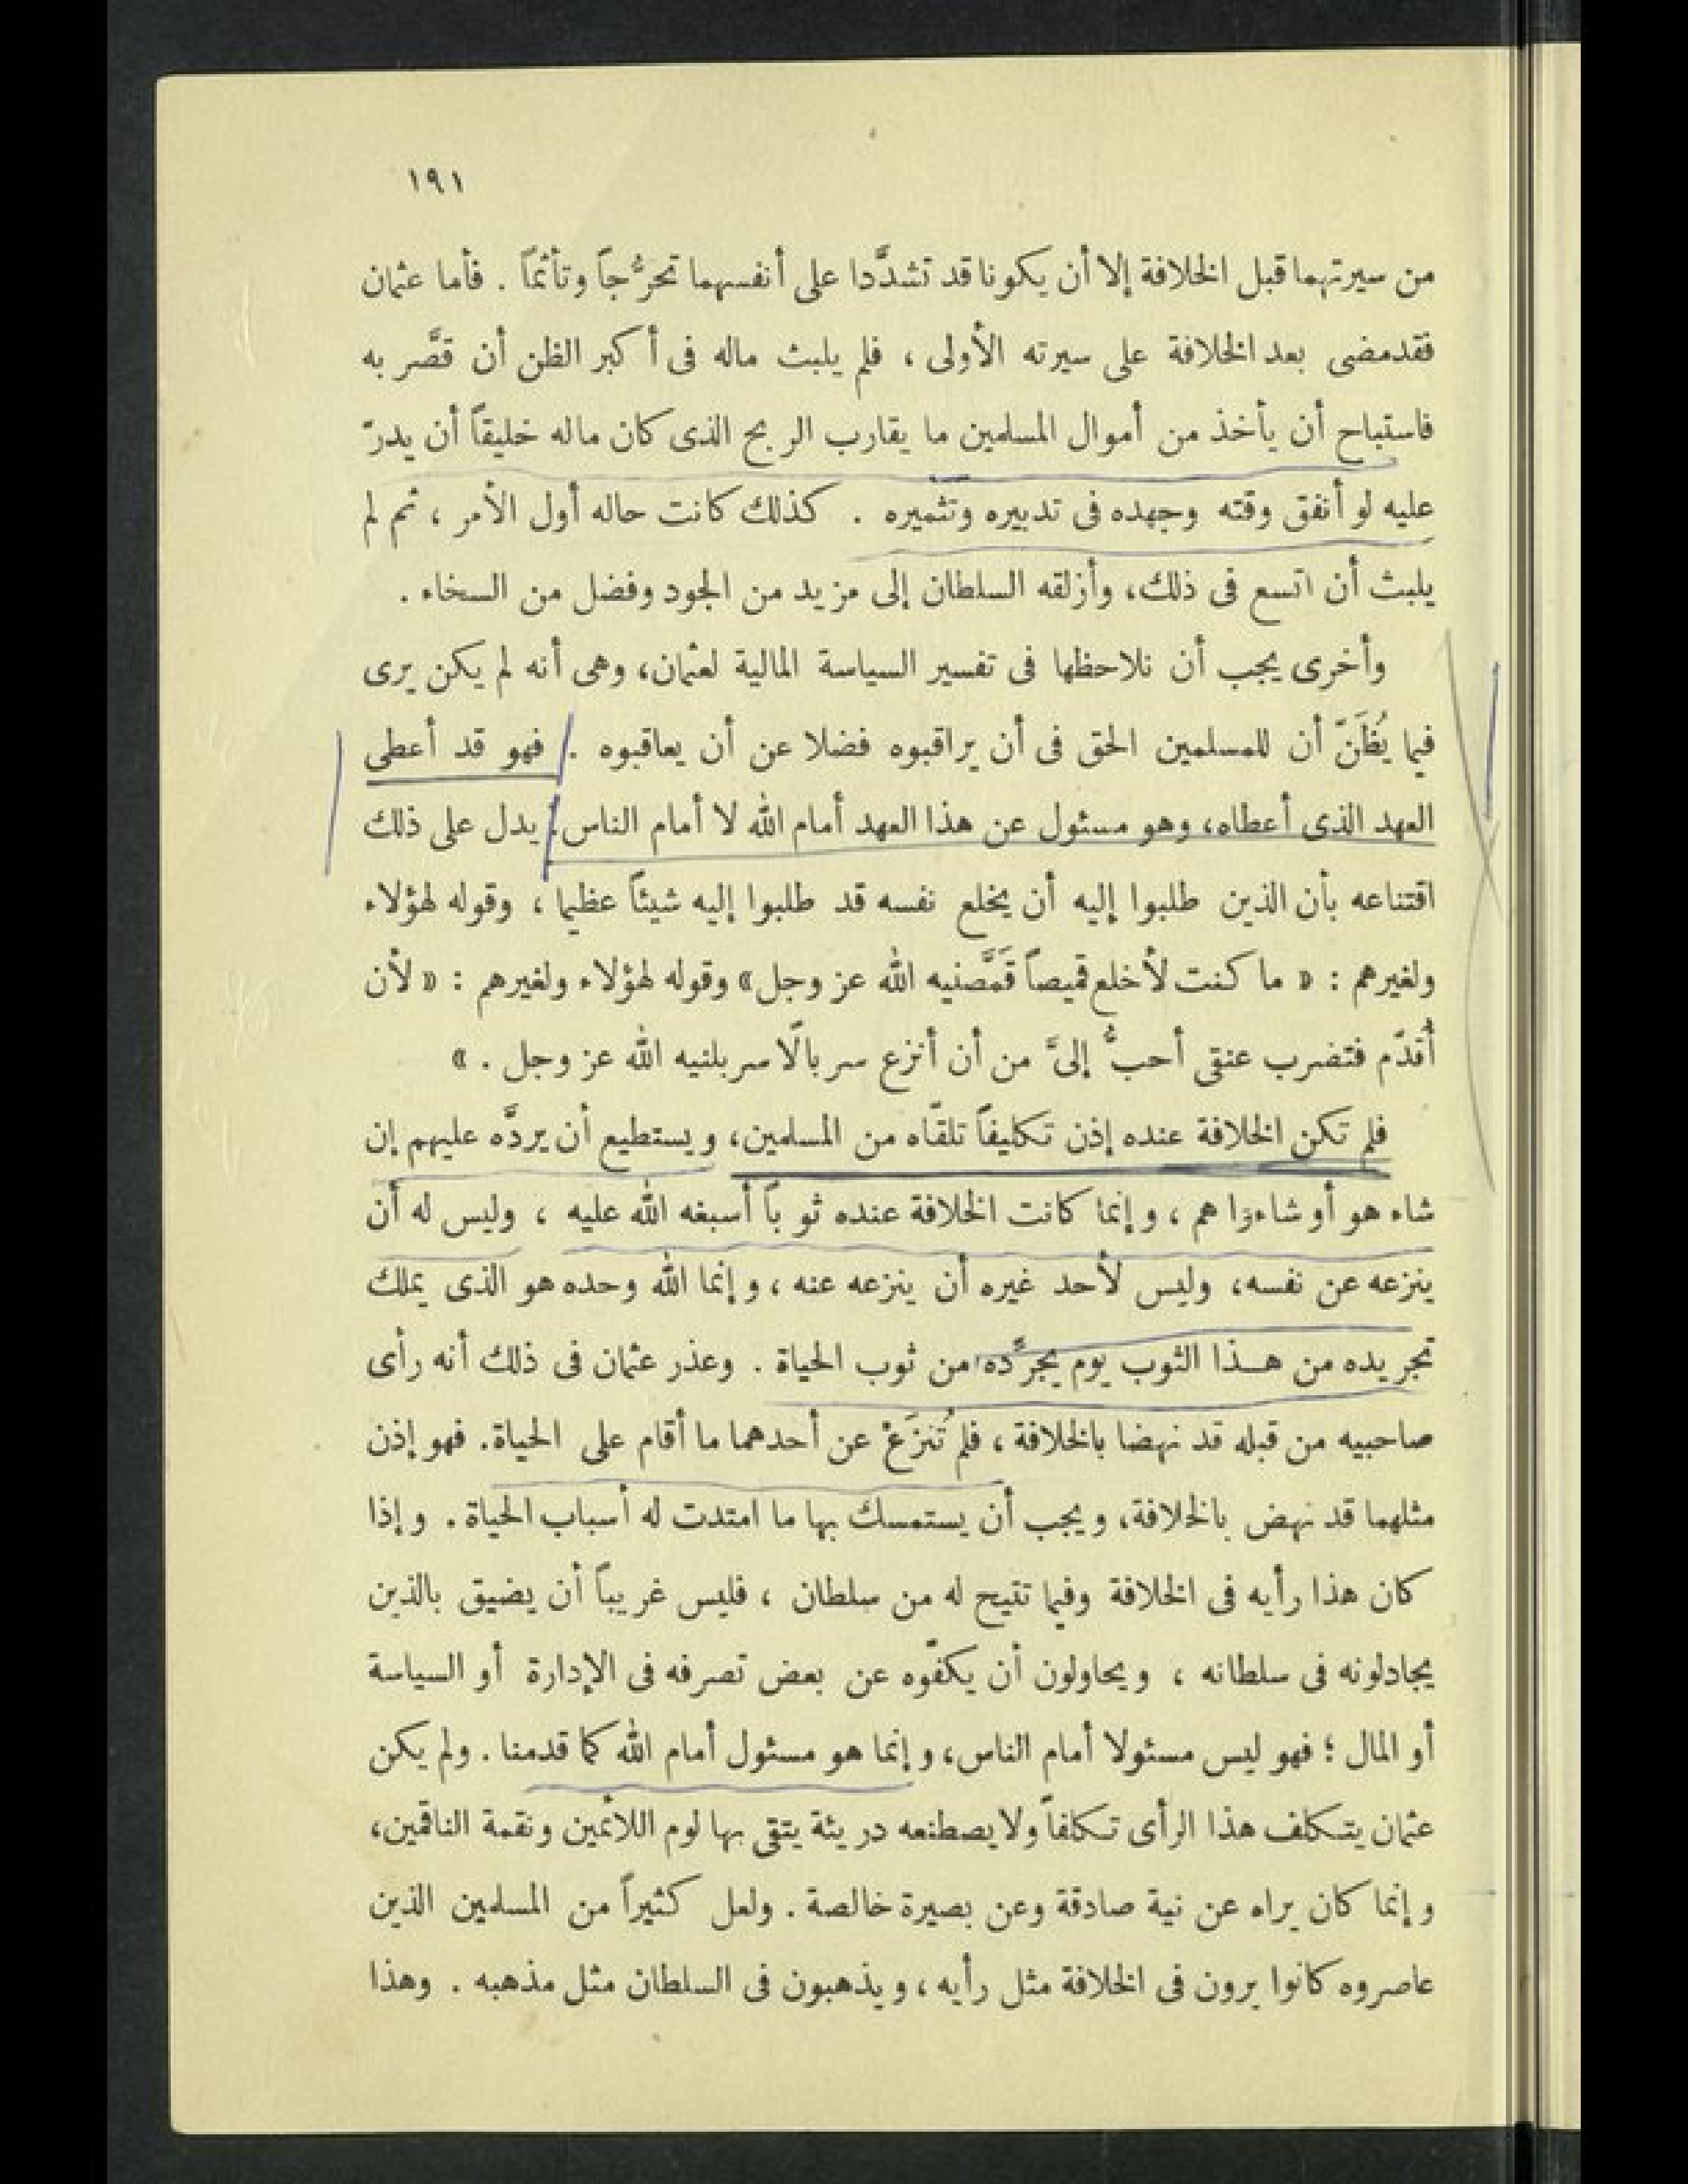 ١٩١
من سيرتهما قبل الخلافة إلا أن يكونا قد تشدَّدا على أنفسهما تحرُّجاً وتأثماً . فأما عثمان
فقدمضى بعد الخلافة على سيرته الأولى ، فلم يلبث ماله فى أكبر الظن أن قصَّر به
فاستباح أن يأخذ من أموال المسلمين ما يقارب الربح الذى كان ماله خليقاً أن يدرّ
عليه لو أنفق وقته وجهده فى تدبيره وتثميره . كذلك كانت حاله أول الأمر ، ثم لم
يلبث أن اتسع فى ذلك، وأزلقه السلطان إلى مزيد من الجود وفضل من السخاء .
وأخرى يجب أن نلاحظها فى تفسير السياسة المالية لعثمان، وهى أنه لم يكن يرى
فيما يُظَنّ أن للمسلمين الحق فى أن يراقبوه فضلا عن أن يعاقبوه . فهو قد أعطى
العهد الذى أعطاه، وهو مسئول عن هذا العهد أمام الله لا أمام الناس. يدل على ذلك
اقتناعه بأن الذين طلبوا إليه أن يخلع نفسه قد طلبوا إليه شيئاً عظيما ، وقوله لهؤلاء
ولغيرهم : « ما كنت لأخلع قميصاً قَمَّصَنيه الله عز وجل» وقوله لهؤلاء ولغيرهم : « لأن
أُقدّم فتضرب عنقى أحبُّ إلىَّ من أن أنزع سربالًا سربلنيه الله عز وجل . »
فلم تكن الخلافة عنده إذن تكليفاً تلقّاه من المسلمين، ويستطيع أن يردَّه عليهم إن
شاء هو أو شاءوا هم ، وإنما كانت الخلافة عنده ثوباً أسبغه الله عليه ، وليس له أن
ينزعه عن نفسه، وليس لأحد غيره أن ينزعه عنه ، وإنما الله وحده هو الذى يملك
تجريده من هـذا الثوب يوم يجرِّده من ثوب الحياة . وعذر عثمان فى ذلك أنه رأى
صاحبيه من قبله قد نهضا بالخلافة ، فلم تُنزَعْ عن أحدهما ما أقام على الحياة. فهو إذن
مثلهما قد نهض بالخلافة، ويجب أن يستمسك بها ما امتدت له أسباب الحياة. وإذا
كان هذا رأيه فى الخلافة وفيما تتيح له من سلطان ، فليس غريباً أن يضيق بالذين
يجادلونه فى سلطانه ، ويحاولون أن يكفّوه عن بعض تصرفه فى الإدارة أو السياسة
أو المال ؛ فهو ليس مسئولا أمام الناس، وإنما هو مسئول أمام الله كما قدمنا . ولم يكن
عثمان يتـكلف هذا الرأى تـكلفاً ولا يصطنعه دريئة يتقى بها لوم اللائمين ونقمة الناقمين،
وإنما كان يراه عن نية صادقة وعن بصيرة خالصة . ولعل كثيراً من المسلمين الذين
عاصروه كانوا يرون فى الخلافة مثل رأيه ، ويذهبون فى السلطان مثل مذهبه . وهذا